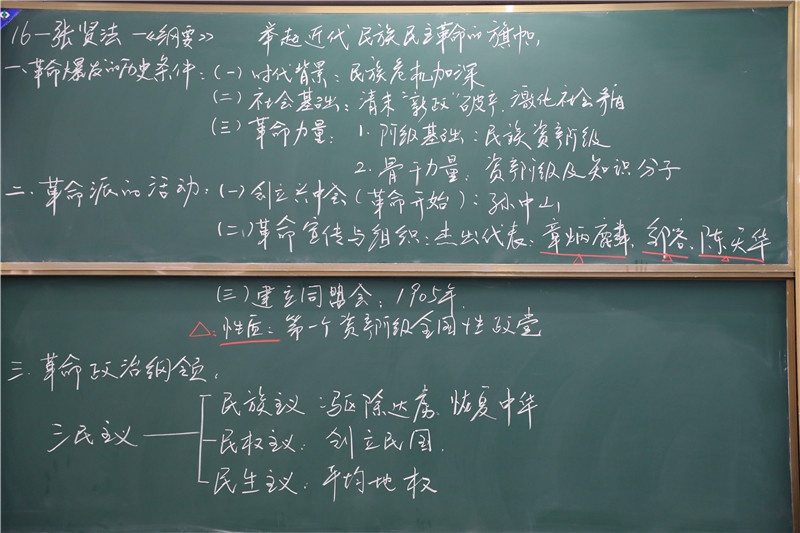 16-张贤法-《纲要》 举起近代民族民主革命的旗帜
一、革命爆发的历史条件：(一)时代背景：民族危机加深
(二)社会基础：清末"新政"破产，激化社会矛盾
(三)革命力量：1.阶级基础：民族资产阶级
2.骨干力量：资产阶级及知识分子
二.革命派的活动：(一)创立兴中会(革命开始)：孙中山
(二)革命宣传与组织：杰出代表：章炳麟、邹容、陈天华
(三)建立同盟会：1905年.
△:性质：第一个资产阶级全国性政党
三.革命政治纲领：
三民主义
民族主义：驱除鞑虏、恢复中华
民权主义：创立民国.
民生主义：平均地权